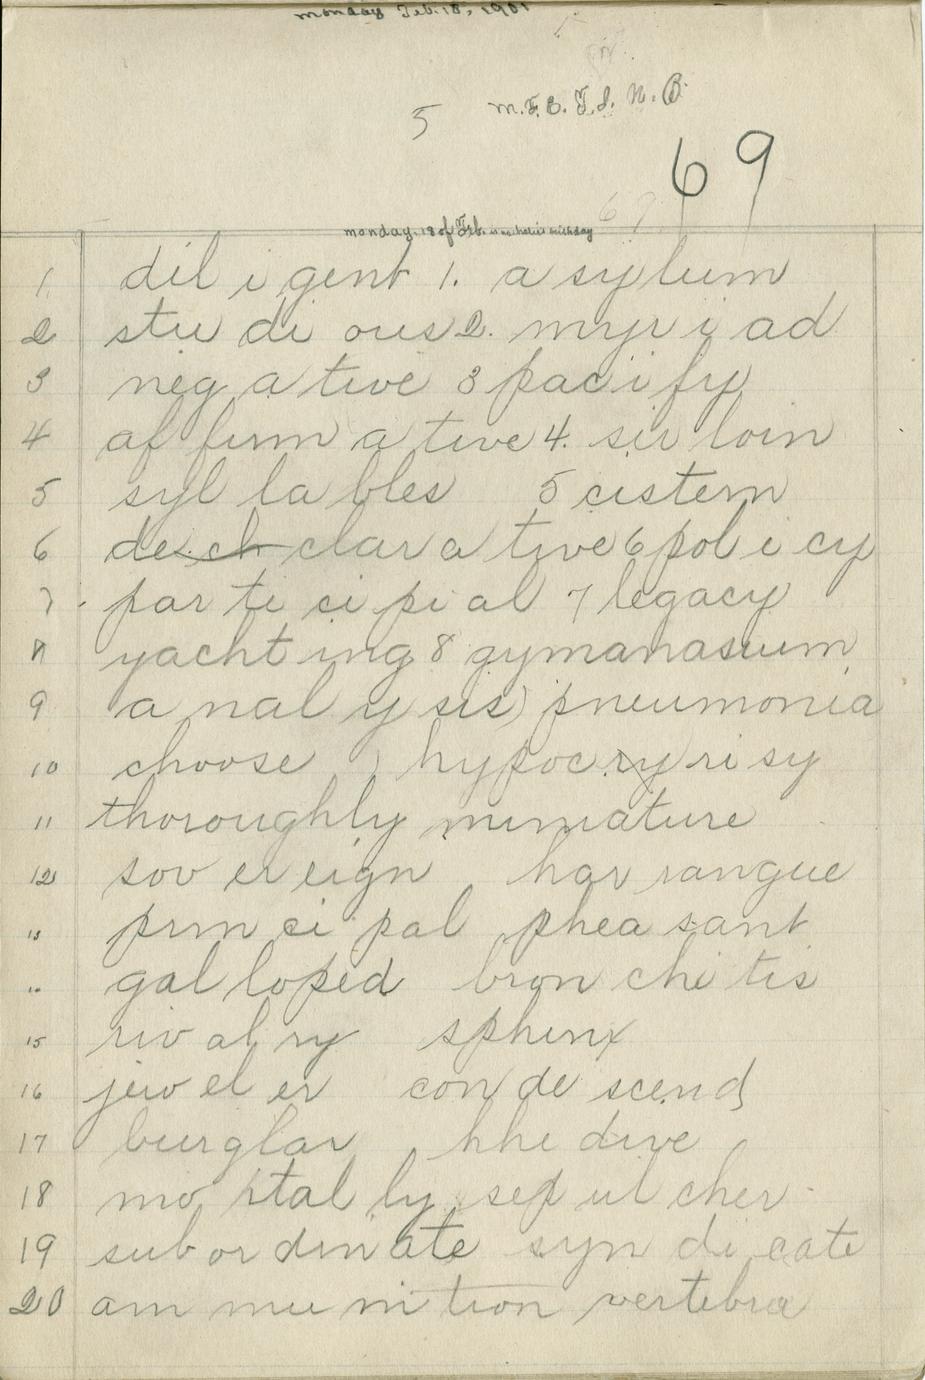 monday Feb. 18, 1901
5 M.F.E.F.S. N. B.
69
69
monday. 18 of Feb. birthday
1. dil i gent 1. a sylum
2 stu di ous 2. myr i ad
3 neg a tive 3 pac i fy
4 af firm a tive 4. sir loin
5 syl la bles 5 cistern
6 de ch clar a tive 6 pol i cy
7 par ti ci pi al 7 legacy
8 yacht ing 8 gymanasium
9 a nal y sis) pneumonia
10 choose ) hypocry risy
11 thoroughly miniature
12 sov er eign har rangue
13 prin ci pal phea sant
gal loped bron chi tis
15 riv al ry sphinx
16 jew el er con de scend
17 burglar khe dive
18 mo rtal ly sep ul cher
19 sub or din ate syn di cate
20 am mu ni tion vertebra